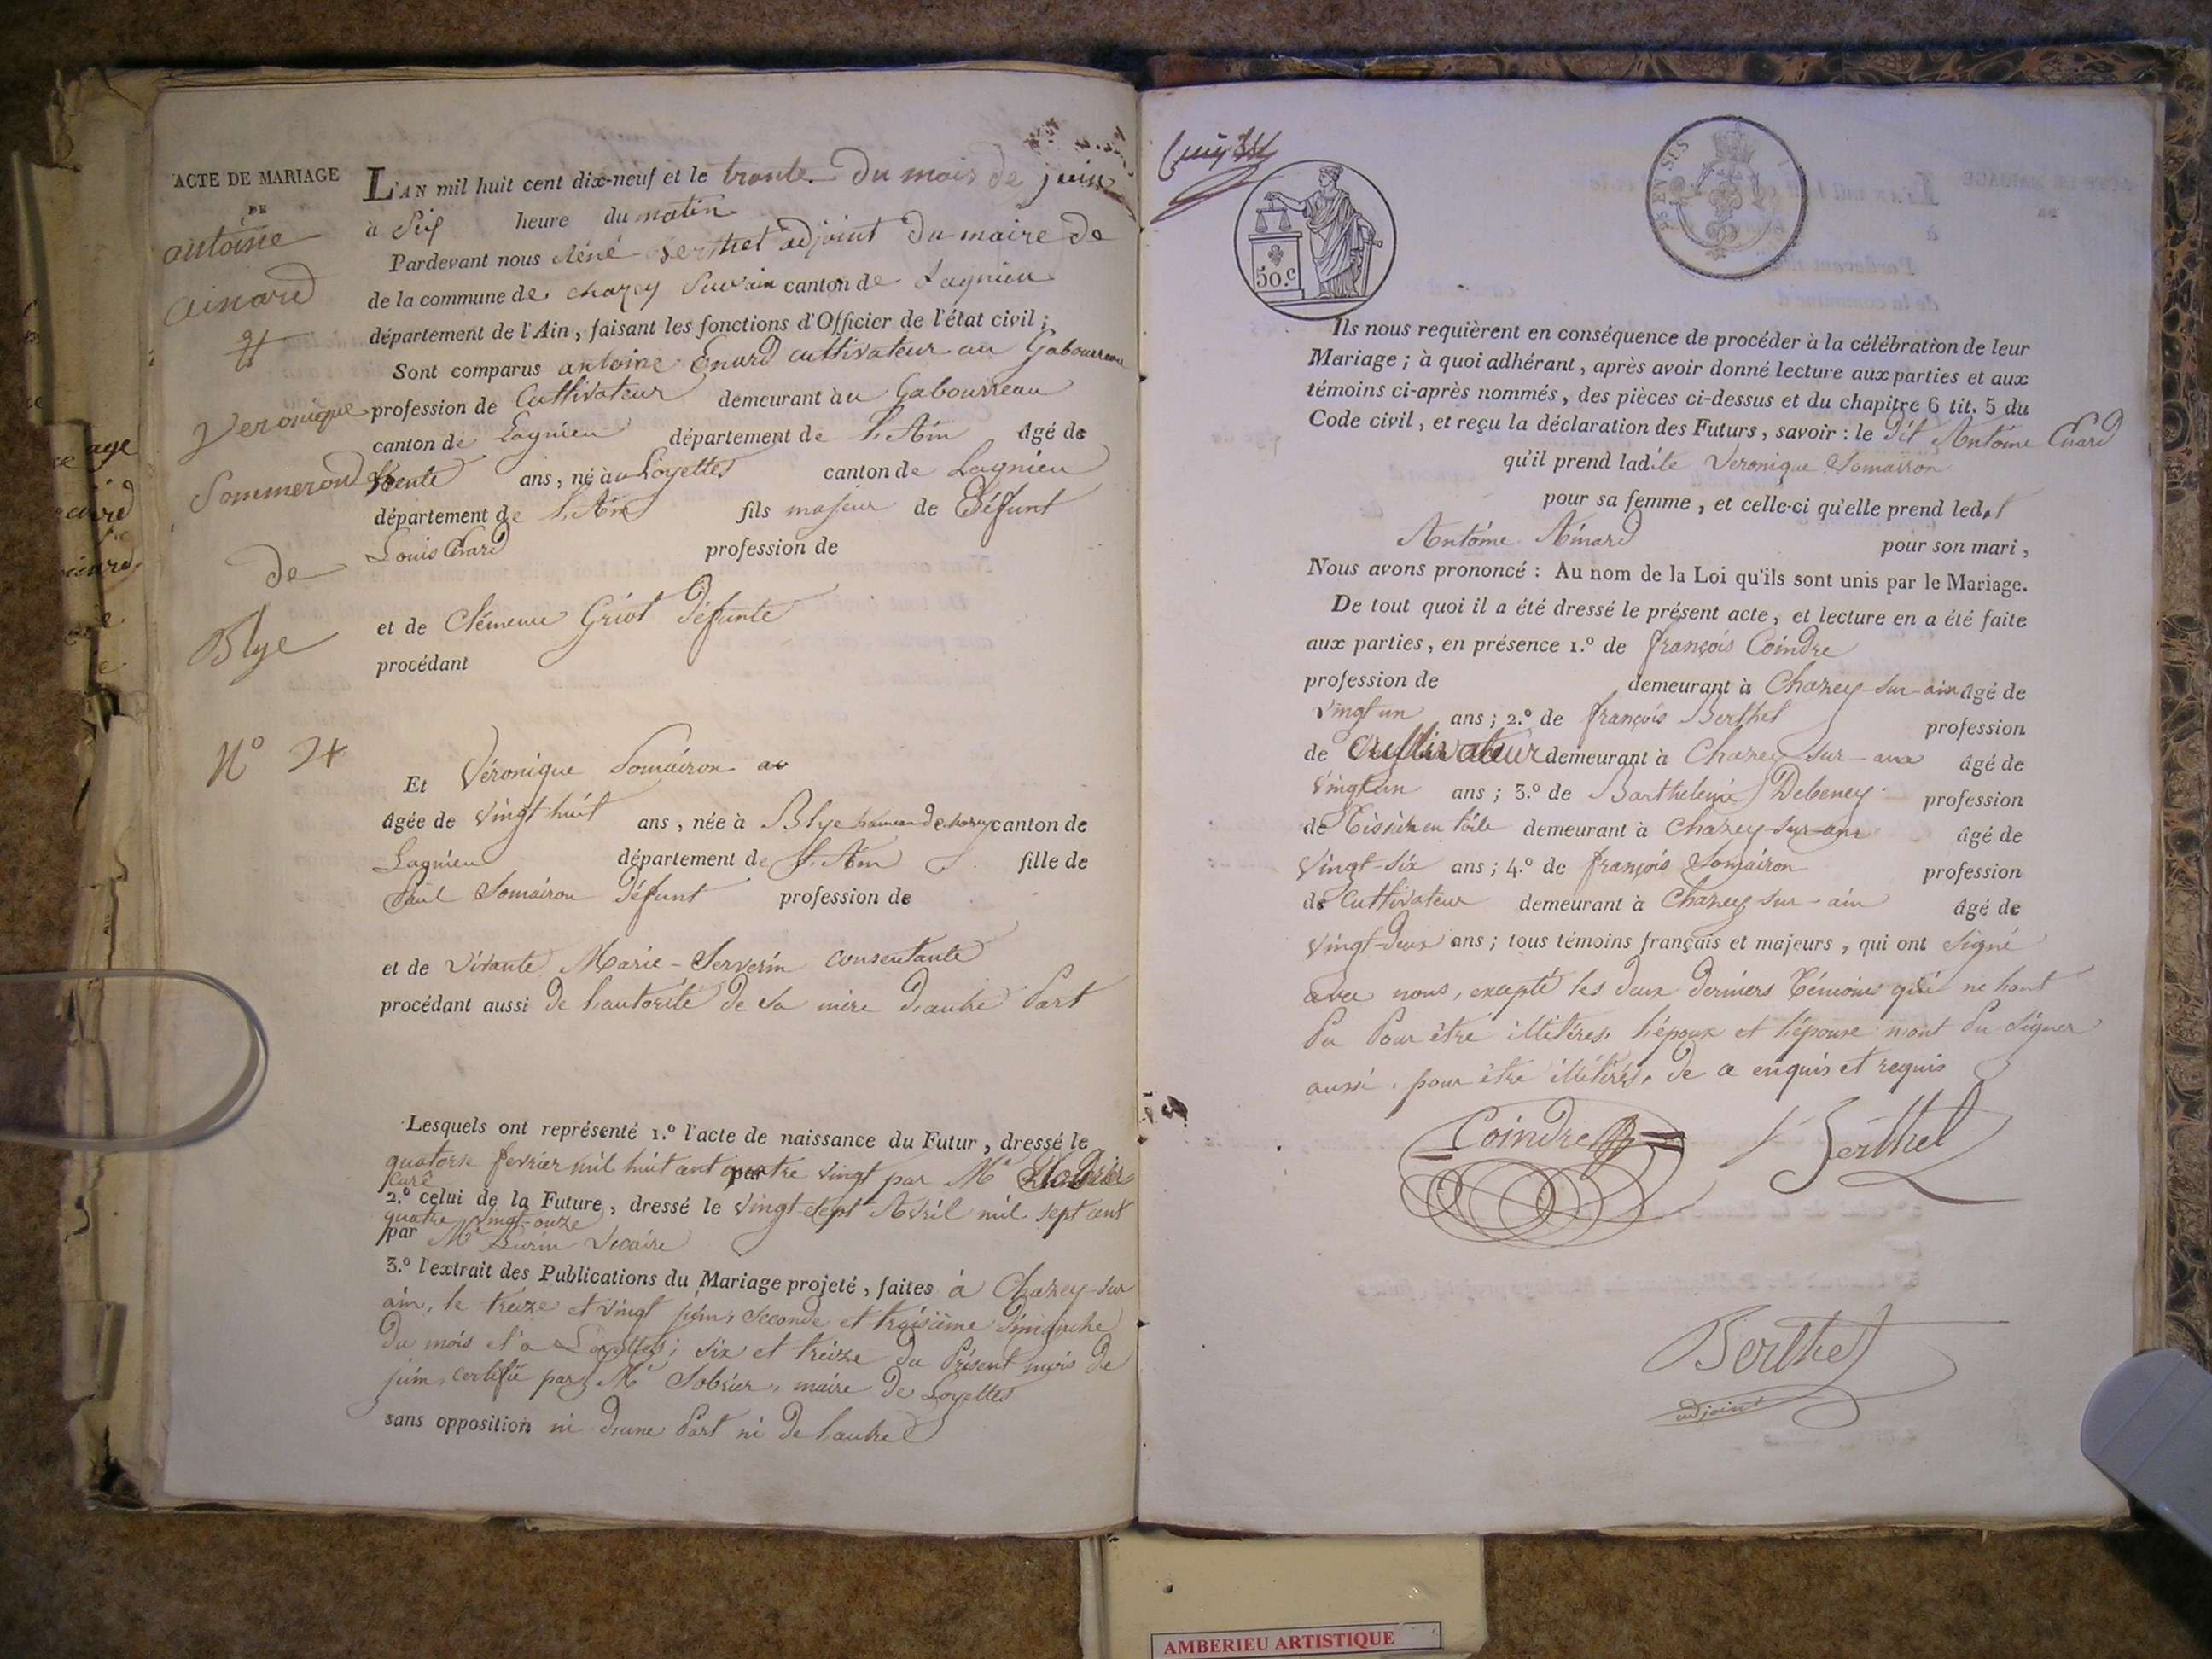 ACTE DE MARIAGE
DE
antoine
ainard
et
Veronique
Sommeron
de
Blye
N° 24
L'AN mil huit cent dix-neuf et le trante du mois de juin
à Six heure du matin
Pardevant nous Réné Berthet adjoint du maire de
de la commune de chazey Surain canton de Lagnieu
département de l'Ain, faisant les fonctions d'Officier de l'état civil;
Sont comparus antoine Enard cultivateur au Gabourreau
profession de Cultivateur demeurant àu Gabourreau
canton de Lagnieu département de L'Ain âgé de
trente ans, né àu Loyettes canton de Lagnieu
département de L'Ain fils majeur de Défunt
Louis Enard profession de
et de Clémence Griot Défunte
procédant
Et Véronique Somairon
âgée de Vingt huit ans, née à Blye hameau de chazey canton de
Lagnieu département de L'Ain fille de
Paul Somairon Défunt profession de
et de Vivante Marie-Serverin consentante
procédant aussi de L'autorité de Sa mère D'autre Part
Lesquels ont représenté 1.º l'acte de naissance du Futur, dressé le
quatorse fevrier mil huit cent quatre vingt par Mr
curé
2.º celui de la Future, dressé le Vingt-Sept Avril mil sept cent
quatre vingt-onze
par Mr Vecaire
3.º l'extrait des Publications du Mariage projeté, faites à Chazey-sur
ain, le treize et vingt juin, Seconde et troisième Dimanche
du mois et à Loyettes; Six et treize du Présent mois de
juin, certifié par Mr Sobrier, maire de Loyettes
sans opposition ni d'une Part ni de L'autre
50.c
Ils nous requièrent en conséquence de procéder à la célébration de leur
Mariage; à quoi adhérant, après avoir donné lecture aux parties et aux
témoins ci-après nommés, des pièces ci-dessus et du chapitre 6 tit. 5 du
Code civil, et reçu la déclaration des Futurs, savoir: le dit Antoine Enard
qu'il prend ladite Veronique Somairon
pour sa femme, et celle-ci qu'elle prend ledit
Antoine Ainard pour son mari,
Nous avons prononcé: Au nom de la Loi qu'ils sont unis par le Mariage.
De tout quoi il a été dressé le présent acte, et lecture en a été faite
aux parties, en présence 1.º de françois Coindre
profession de demeurant à Chazey-sur-ain âgé de
Vingt un ans; 2.º de françois Berthet profession
de Cultivateur demeurant à Chazey-sur-ain âgé de
Vingt un ans; 3.º de Barthelemie Debeney profession
de Tissier en toile demeurant à Chazey-sur-ain âgé de
Vingt-six ans; 4.º de françois Somairon profession
de Cultivateur demeurant à Chazey-sur-ain âgé de
Vingt-deux ans; tous témoins français et majeurs, qui ont Signé
avec nous, excepté les deux derniers témoins qui ne L'ont
Pu Pour être illitérés, L'époux et L'épouse n'ont Pu Signer
aussi, pour être illitérés, de ce enquis et requis
Coindre f Berthet
Berthet
adjoint
AMBERIEU ARTISTIQUE